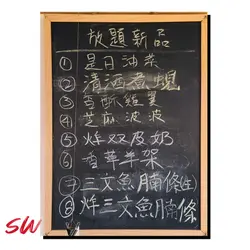 放題新品
① 是日油菜
② 清酒煮蜆
③ 香酥雞翼
④ 芝麻波波
⑤ 炸双皮奶
⑥ 香草羊架
⑦ 三文魚腩條(生)
⑧ 炸三文魚腩條
SW